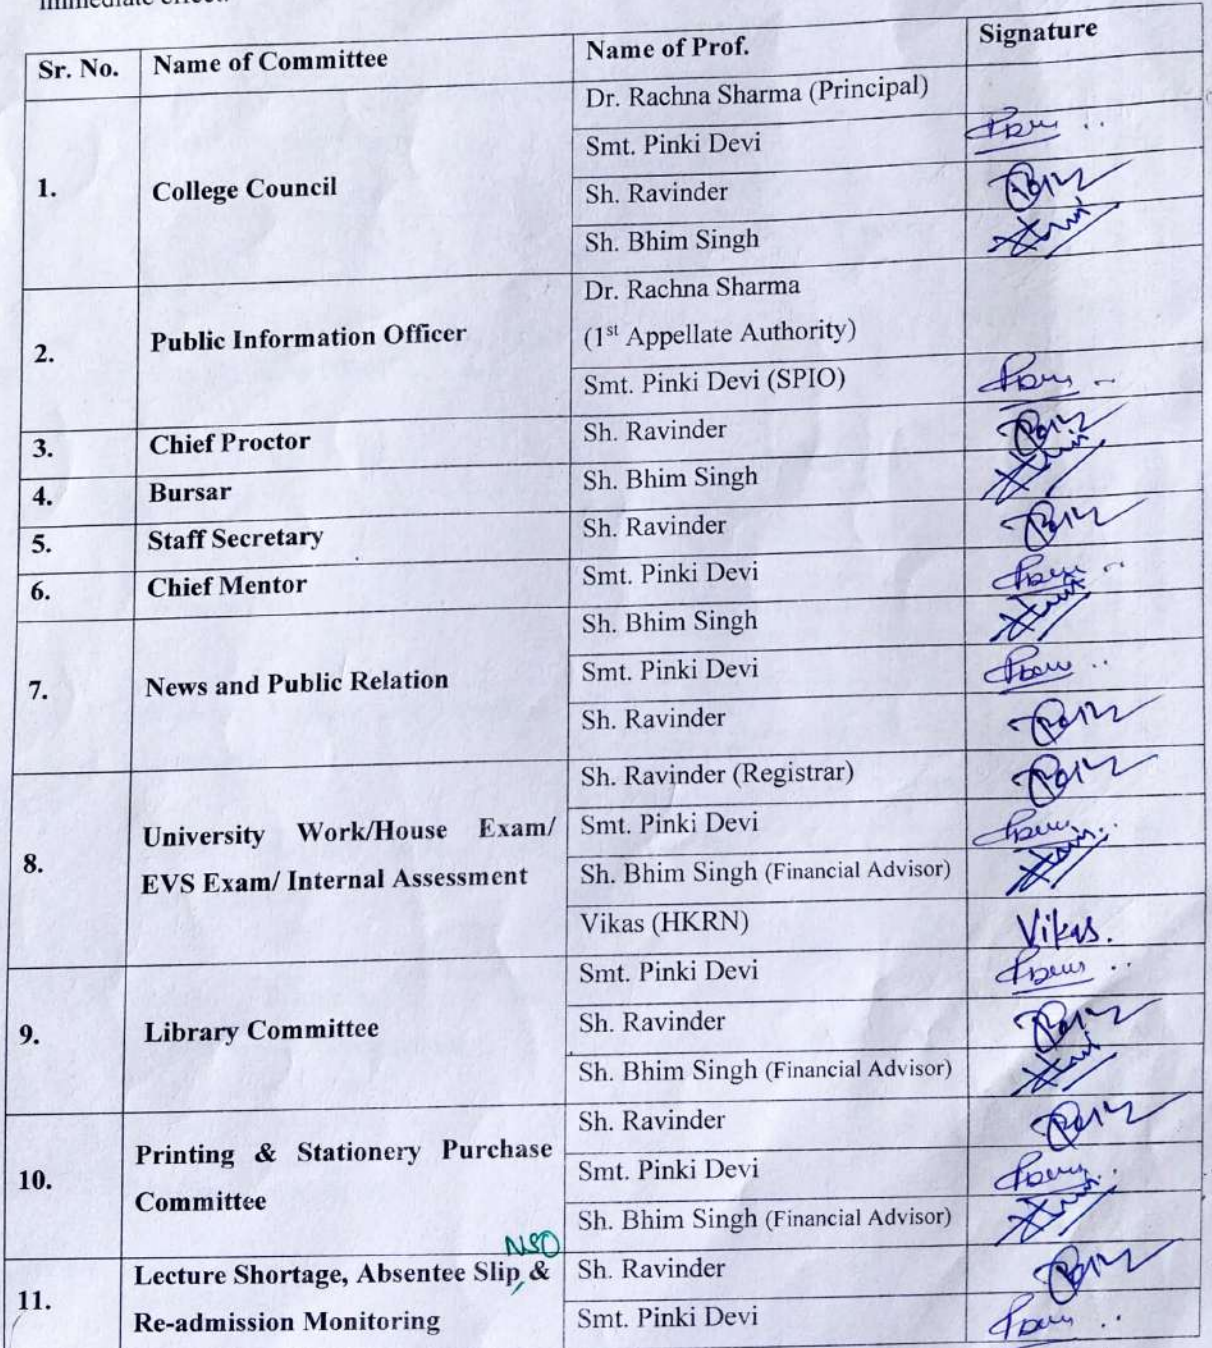 Sr. No. Name of Committee Name of Prof. Signature
1. College Council Dr. Rachna Sharma (Principal)
Smt. Pinki Devi
Sh. Ravinder
Sh. Bhim Singh
2. Public Information Officer Dr. Rachna Sharma
(1st Appellate Authority)
Smt. Pinki Devi (SPIO)
3. Chief Proctor Sh. Ravinder
4. Bursar Sh. Bhim Singh
5. Staff Secretary Sh. Ravinder
6. Chief Mentor Smt. Pinki Devi
7. News and Public Relation Sh. Bhim Singh
Smt. Pinki Devi
Sh. Ravinder
8. University Work/House Exam/
EVS Exam/ Internal Assessment
Sh. Ravinder (Registrar)
Smt. Pinki Devi
Sh. Bhim Singh (Financial Advisor)
Vikas (HKRN) Vikas.
9. Library Committee Smt. Pinki Devi
Sh. Ravinder
Sh. Bhim Singh (Financial Advisor)
10. Printing & Stationery Purchase
Committee
Sh. Ravinder
Smt. Pinki Devi
Sh. Bhim Singh (Financial Advisor)
NSO
11. Lecture Shortage, Absentee Slip, &
Re-admission Monitoring
Sh. Ravinder
Smt. Pinki Devi